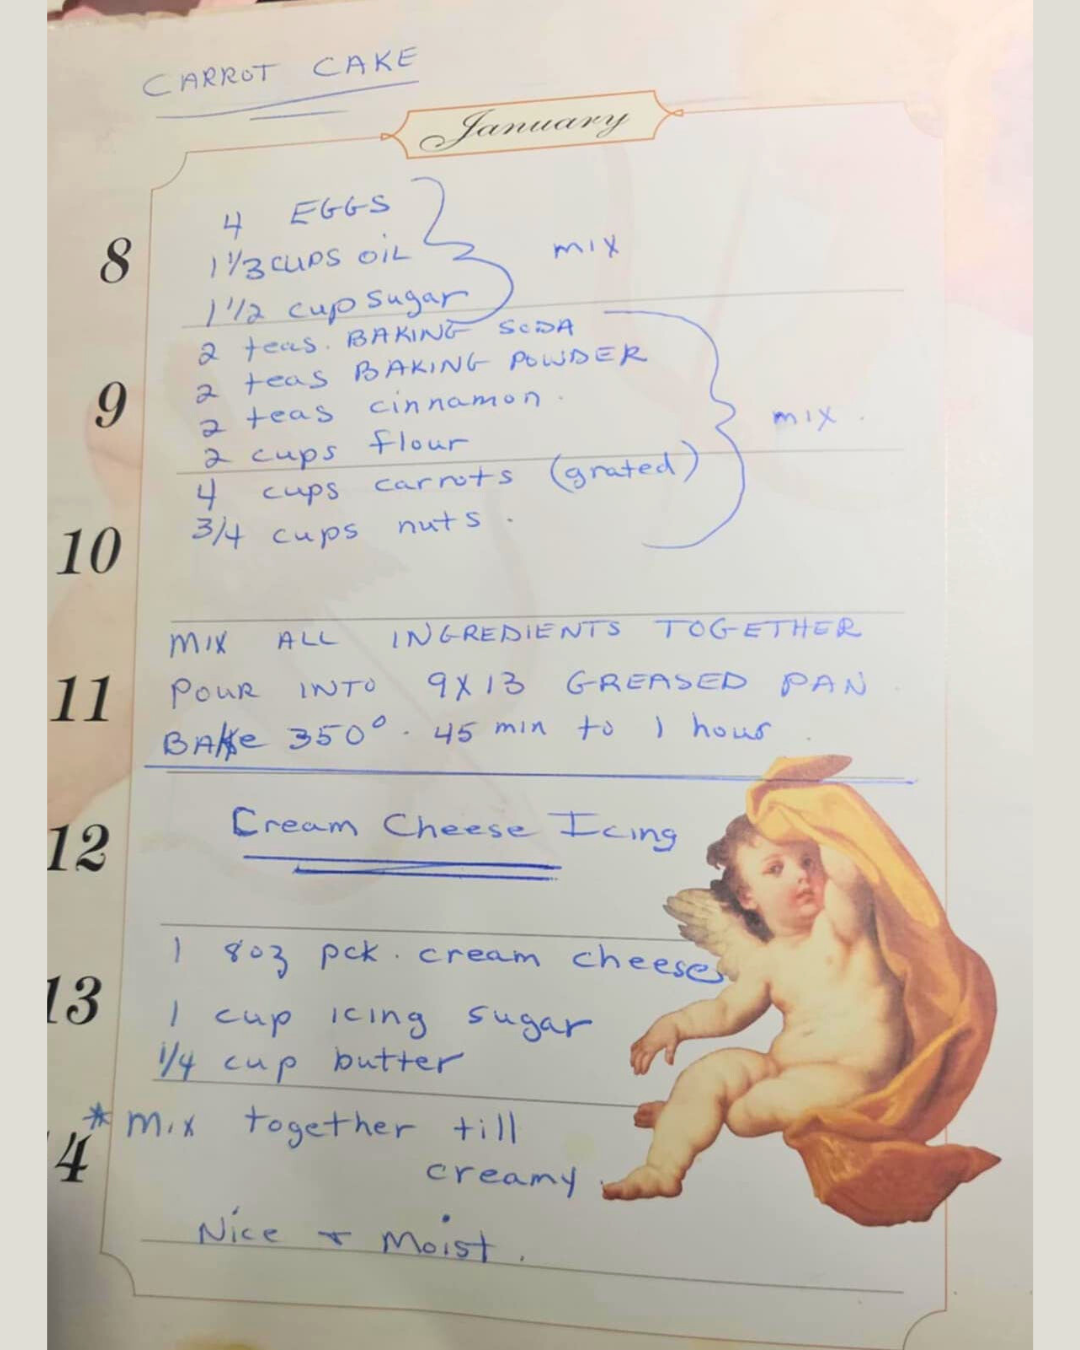 CARROT CAKE
January
4 EGGS
8
1 1/3 CUPS OIL
mix
1 1/2 cup sugar
2 teas. BAKING SODA
2 teas BAKING POWDER
9
2 teas cinnamon.
mix.
2 cups flour
4 cups carrots (grated)
3/4 cups nuts.
10
MIX ALL INGREDIENTS TOGETHER
11
POUR INTO 9X13 GREASED PAN
BAKe 350°. 45 min to 1 hour.
12
Cream Cheese Icing
1 8oz pck. cream cheese
13
1 cup icing sugar
1/4 cup butter
* Mix together till
4
creamy.
Nice + Moist.